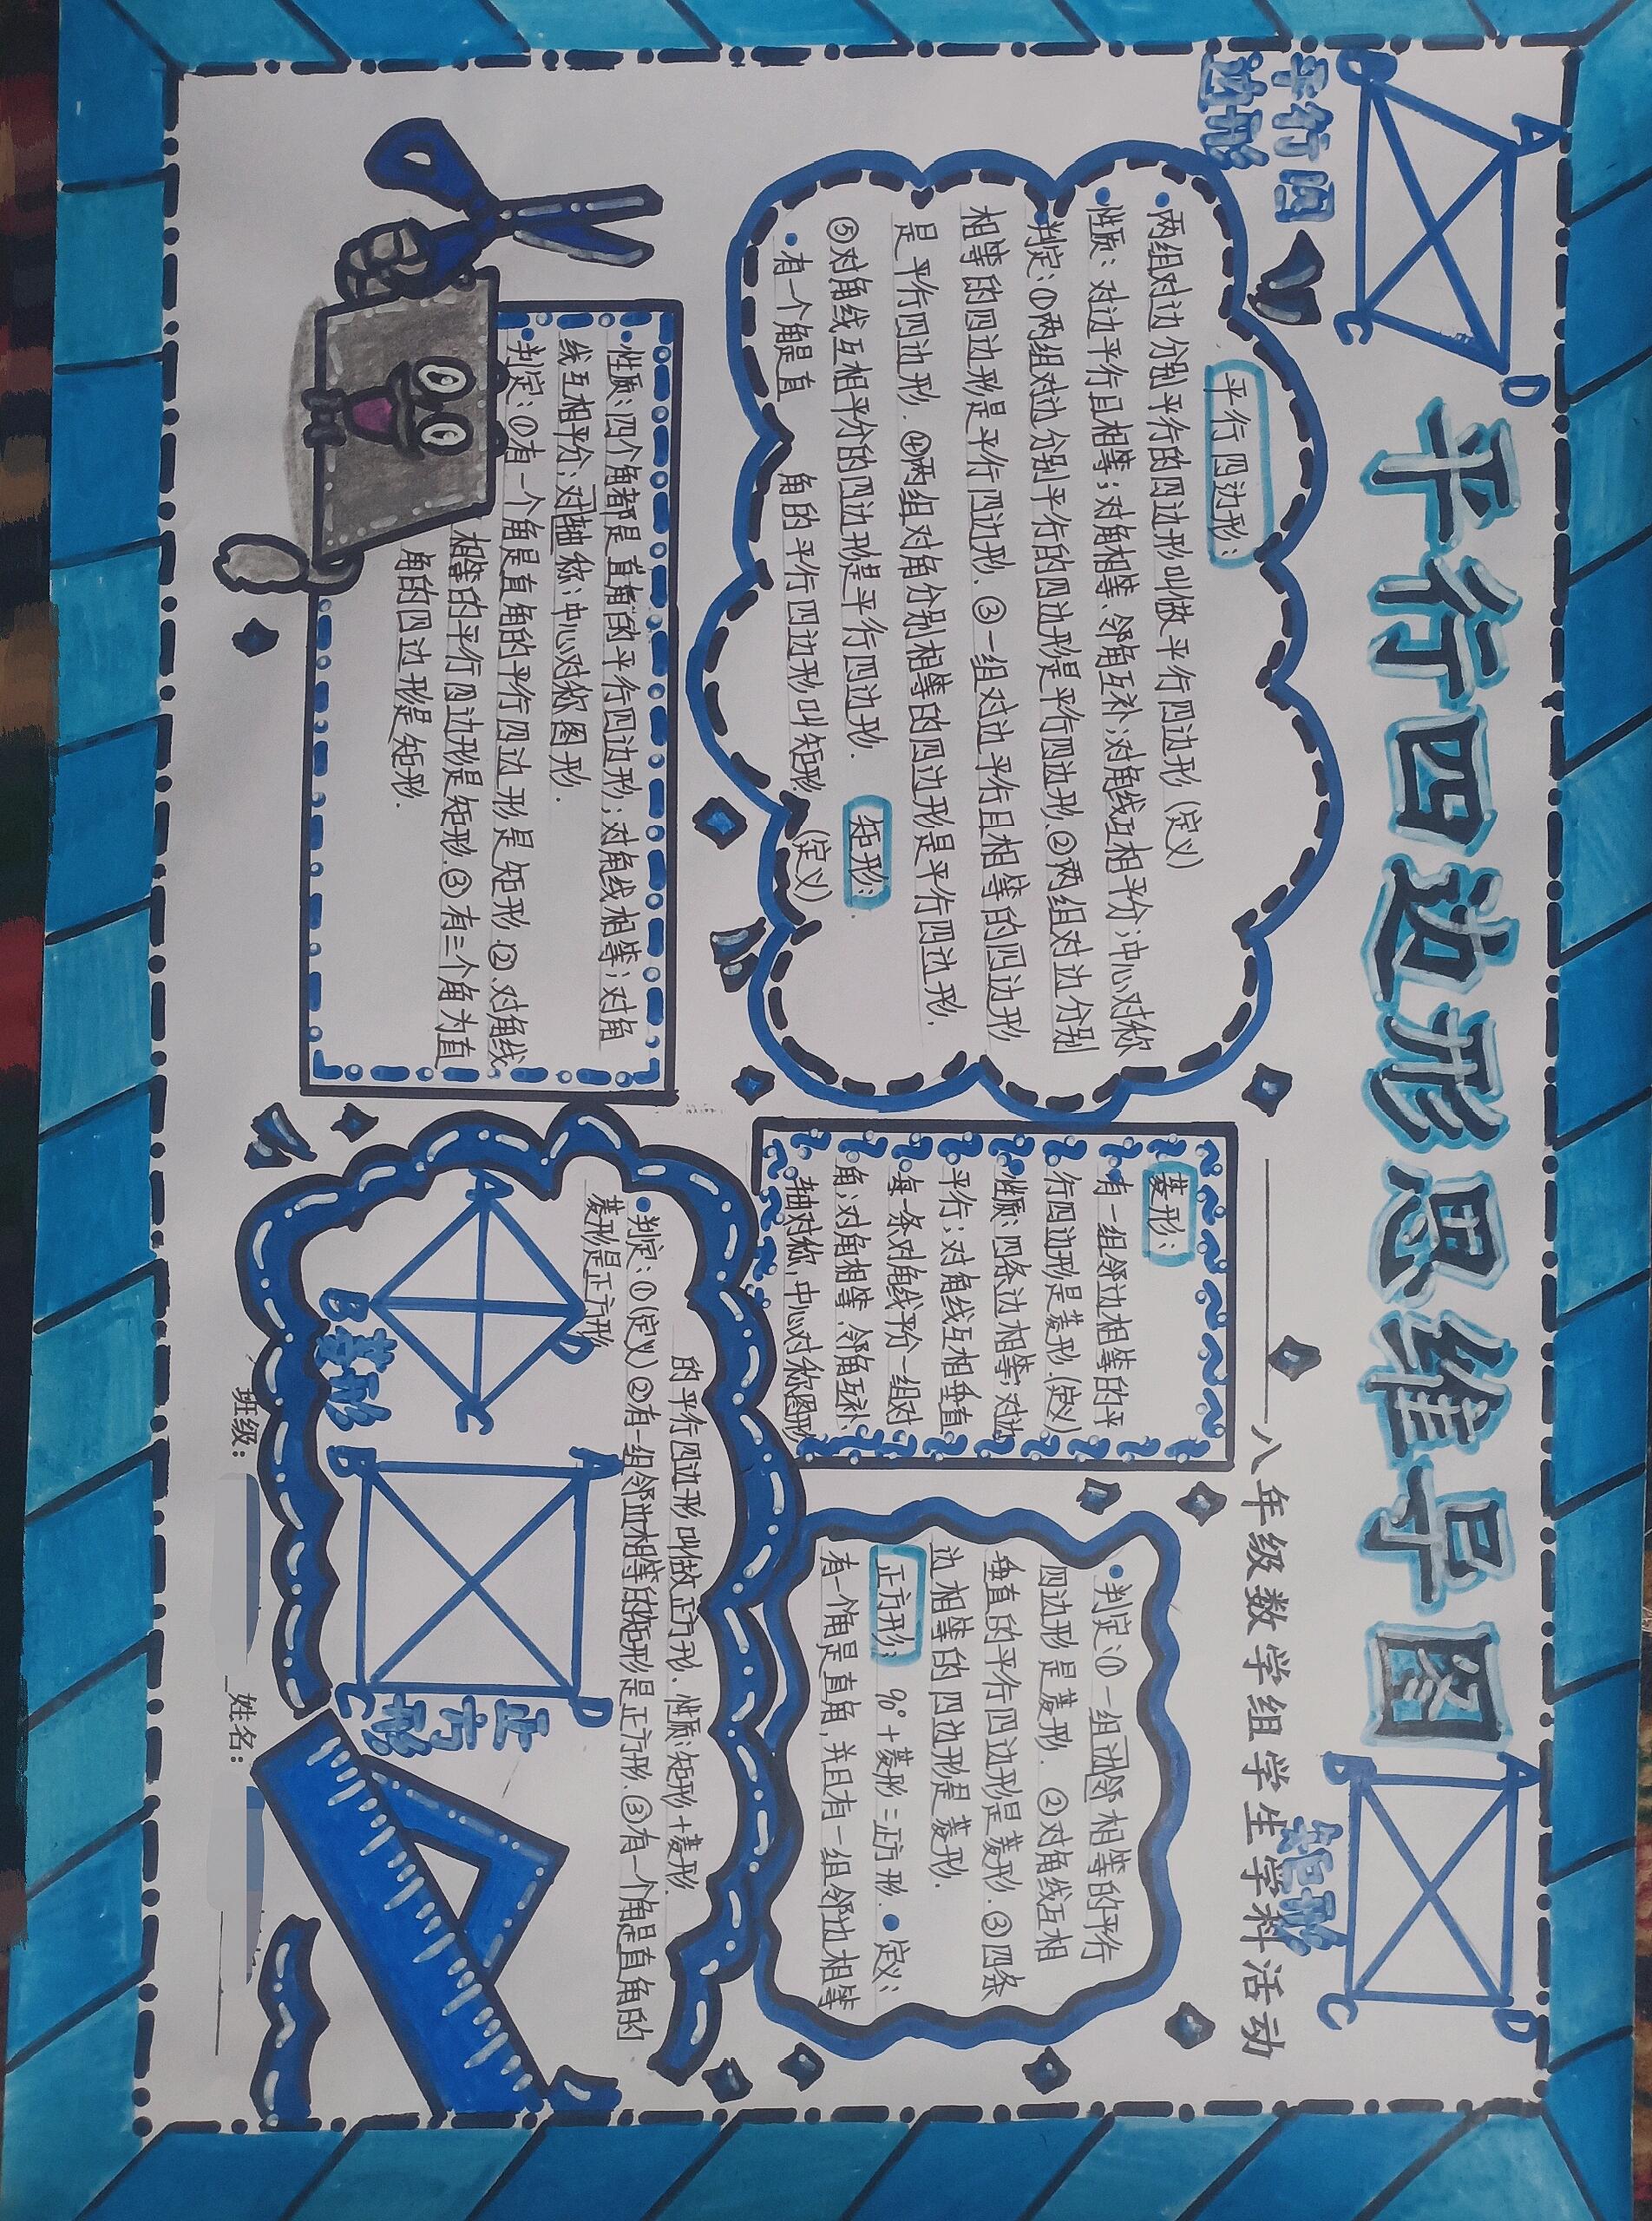 平行四边形思维导图
——八年级数学组学生学科活动
A
B
C
D
平行四
边形
A
B
C
D
矩形
平行四边形：
•两组对边分别平行的四边形叫做平行四边形(定义)
•性质：对边平行且相等；对角相等、邻角互补；对角线互相平分；中心对称
•判定：①两组对边分别平行的四边形是平行四边形、②两组对边分别
相等的四边形是平行四边形、③一组对边平行且相等的四边形
是平行四边形．④两组对角分别相等的四边形是平行四边形．
⑤对角线互相平分的四边形是平行四边形．
矩形：
•有一个角是直 角的平行四边形叫矩形．(定义)
•性质：四个角都是直角的平行四边形；对角线相等；对角
线互相平分；对轴称；中心对称图形．
•判定：①有一个角是直角的平行四边形是矩形．②．对角线
相等的平行四边形是矩形．③有三个角为直
角的四边形是矩形．
菱形：
•有一组邻边相等的平
行四边形是菱形．(定义)
•性质：四条边相等；对边
平行；对角线互相垂直
每一条对角线平分一组对
角；对角相等、邻角互补
轴对称，中心对称图形
•判定：①一组边邻相等的平行
四边形是菱形．②对角线互相
垂直的平行四边形是菱形．③四条
边相等的四边形是菱形．
正方形： 90°＋菱形＝正方形．•定义：
有一个角是直角，并且有一组邻边相等
的平行四边形叫做正方形．性质：矩形＋菱形．
•判定：①(定义)②有一组邻边相等的矩形是正方形．③有一个角是直角的
菱形是正方形
A
B
C
D
菱形
A
B
C
D
正方
形
班级：
姓名：